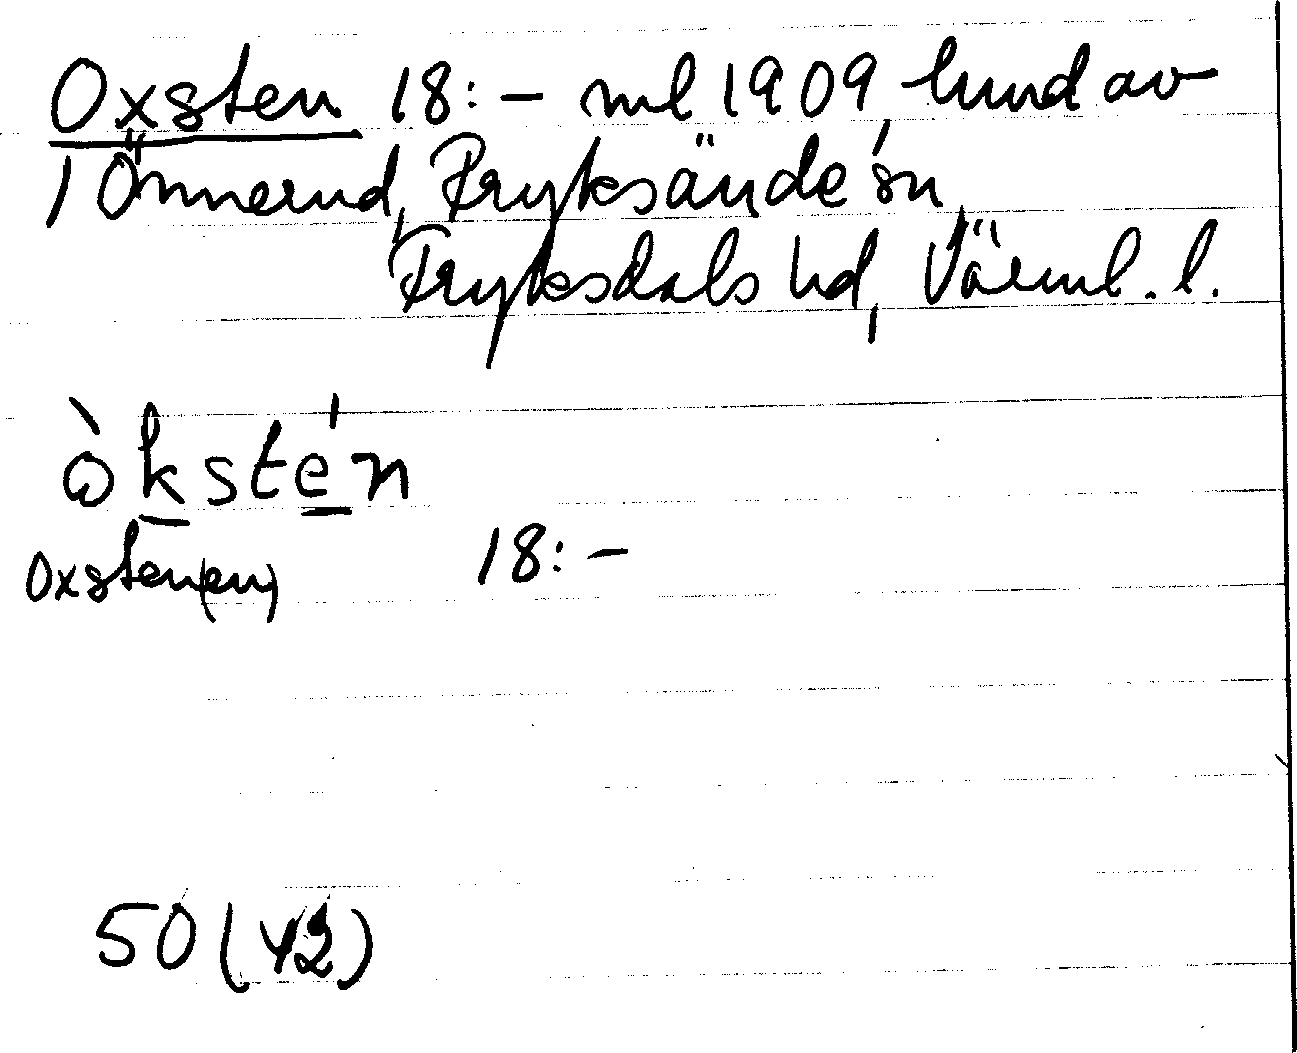 Oxsten 18:- ml 1909, lund av
1 Önnerud, Fryksände sn,
Fryksdals hd, Värml. l.
ò̀kstén
Oxsten(en) 18:-
50 (42)